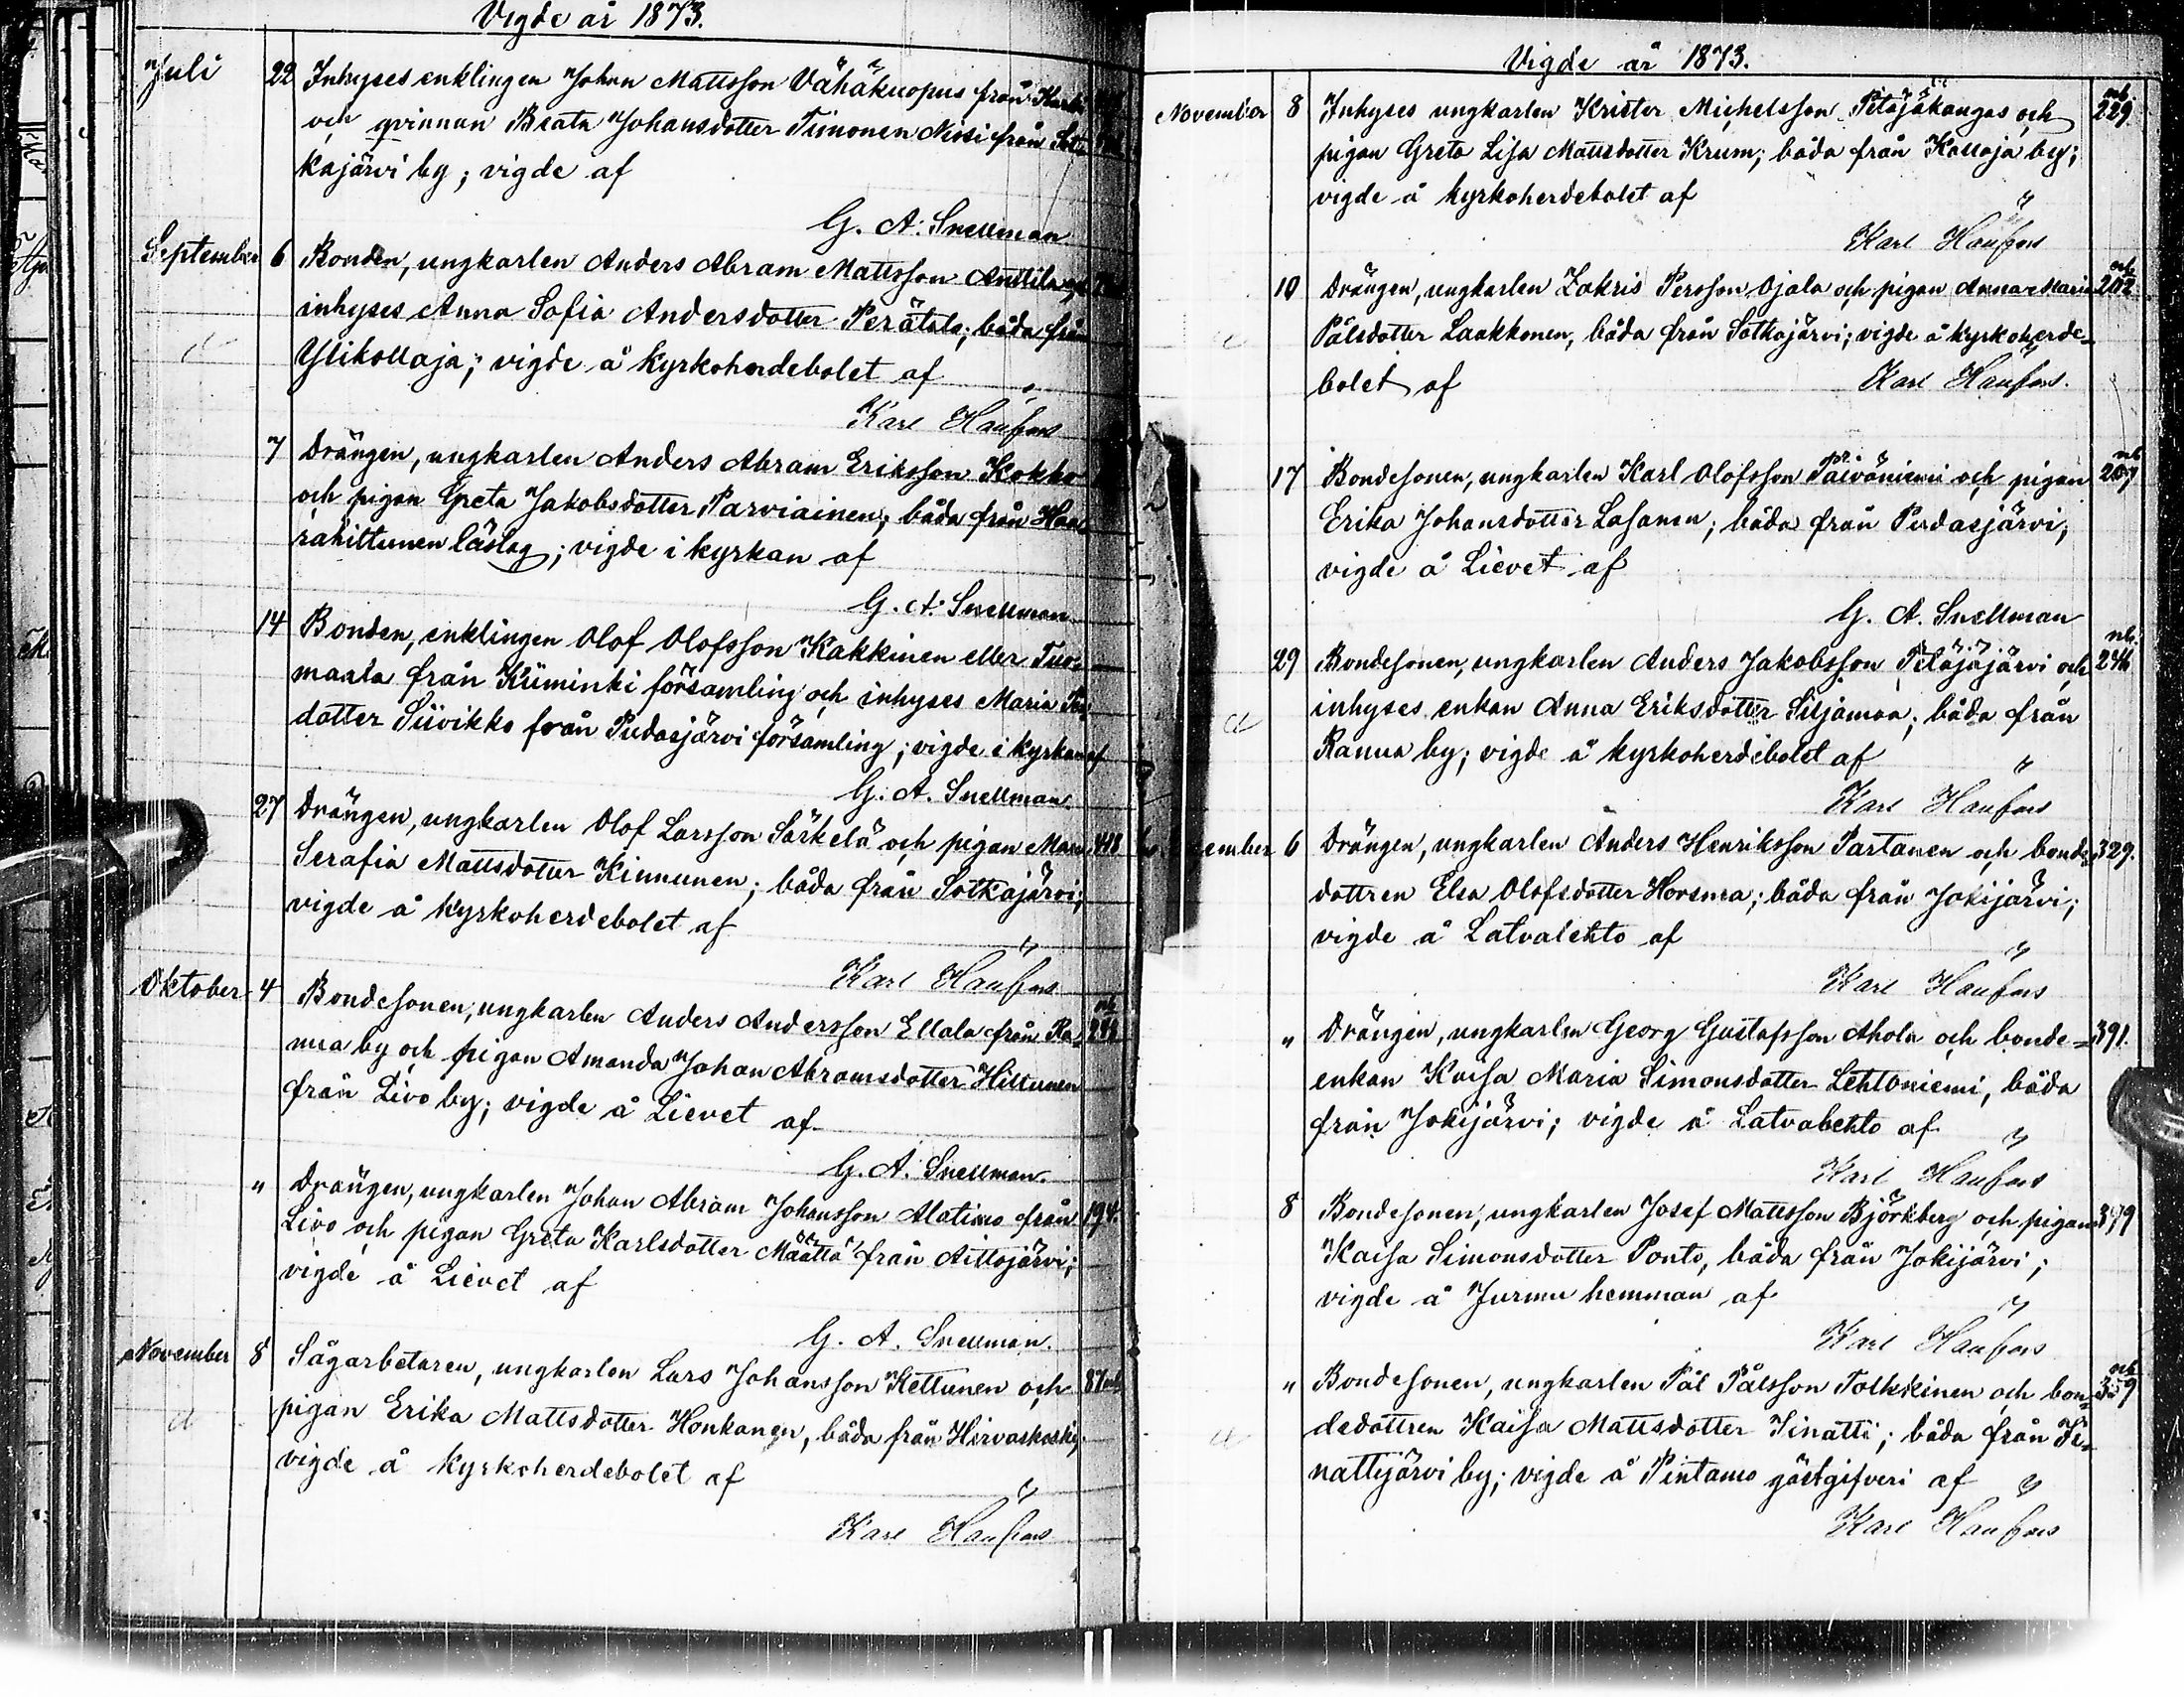 Vigde år 1873.
Juli 22 Inhyses enklingen Johan Mattsson Vähäkuopus från
och qvinnan Beata Johansdotter Timonen Nissi från Sot-
kajärvi by; vigde af
G. A. Snellman
September 6 Bonden, ungkarlen Anders Abram Mattsson Anttila och
inhyses Anna Sofia Andersdotter Perätalo; båda från
Ylikollaja; vigde å kyrkoherdebolet af
Karl Hanfors
7 Drängen, ungkarlen Anders Abram Eriksson Kokko
och pigan Greta Jakobsdotter Parviainen; båda från
rahiltunen läslag; vigde i kyrkan af
G. A. Snellman
14 Bonden, enklingen Olof Olofsson Kakkinen eller Tuo-
maala från Kiiminki församling och inhyses Maria
dotter Siivikko från Pudasjärvi församling; vigde i kyrkan af
G. A. Snellman
27 Drängen, ungkarlen Olof Larsson Särkelä och pigan Maria 418
Serafia Mattsdotter Kinnunen; båda från Sotkajärvi;
vigde å kyrkoherdebolet af
Karl Hanfors
Oktober 4 Bondesonen, ungkarlen Anders Andersson Ellala från Ra-
nua by och pigan Amanda Johan Abramsdotter Hiltunen
från Livo by; vigde å Lievet af
G. A. Snellman.
" Drängen, ungkarlen Johan Abram Johansson Alatimo från 194.
Livo och pigan Greta Karlsdotter Määttä från Aittojärvi;
vigde å Lievet af
G. A. Snellman.
November 8 Sågarbetaren, ungkarlen Lars Johansson Kettunen och 87
pigan Erika Mattsdotter Honkanen, båda från Hirvaskoski;
vigde å kyrkoherdebolet af
Karl Hanfors
Vigde år 1873.
November 8 Inhyses ungkarlen Krister Michelsson Petäjäkangas och 229.
pigan Greta Lisa Mattsdotter Krum; båda från Kollaja by;
vigde å kyrkoherdebolet af
Karl Hanfors
10 Drängen, ungkarlen Zakris Persson Ojala och pigan Anna Maria 202
Pålsdotter Laakkonen, båda från Sotkajärvi; vigde å kyrkoherde-
bolet af Karl Hanfors.
17 Bondesonen, ungkarlen Karl Olofsson Päiväniemi och pigan 207
Erika Johansdotter Lasanen; båda från Pudasjärvi;
vigde å Lievet af
G. A. Snellman
29 Bondesonen, ungkarlen Anders Jakobsson Petäjäjärvi och 246
inhyses enkan Anna Eriksdotter Siljamaa; båda från
Ranua by; vigde å kyrkoherdebolet af
Karl Hanfors
ember 6 Drängen, ungkarlen Anders Henriksson Partanen och bonde- 329.
dottren Elsa Olofsdotter Horsma; båda från Jokijärvi;
vigde å Latvalehto af
Karl Hanfors
" Drängen, ungkarlen Georg Gustafsson Ahola och bonde- 391.
enkan Kaisa Maria Simonsdotter Lehtoniemi, båda
från Jokijärvi; vigde å Latvalehto af
Karl Hanfors
8 Bondesonen, ungkarlen Josef Mattsson Björkberg och pigan 379
Kaisa Simonsdotter Ponto, båda från Jokijärvi;
vigde å Jurmu hemman af
Karl Hanfors
" Bondesonen, ungkarlen Pål Pålsson Tolkkinen och bon- 359
dedottren Kaisa Mattsdotter Iinatti; båda från Ii-
nattijärvi by; vigde å Pintamo gästgifveri af
Karl Hanfors